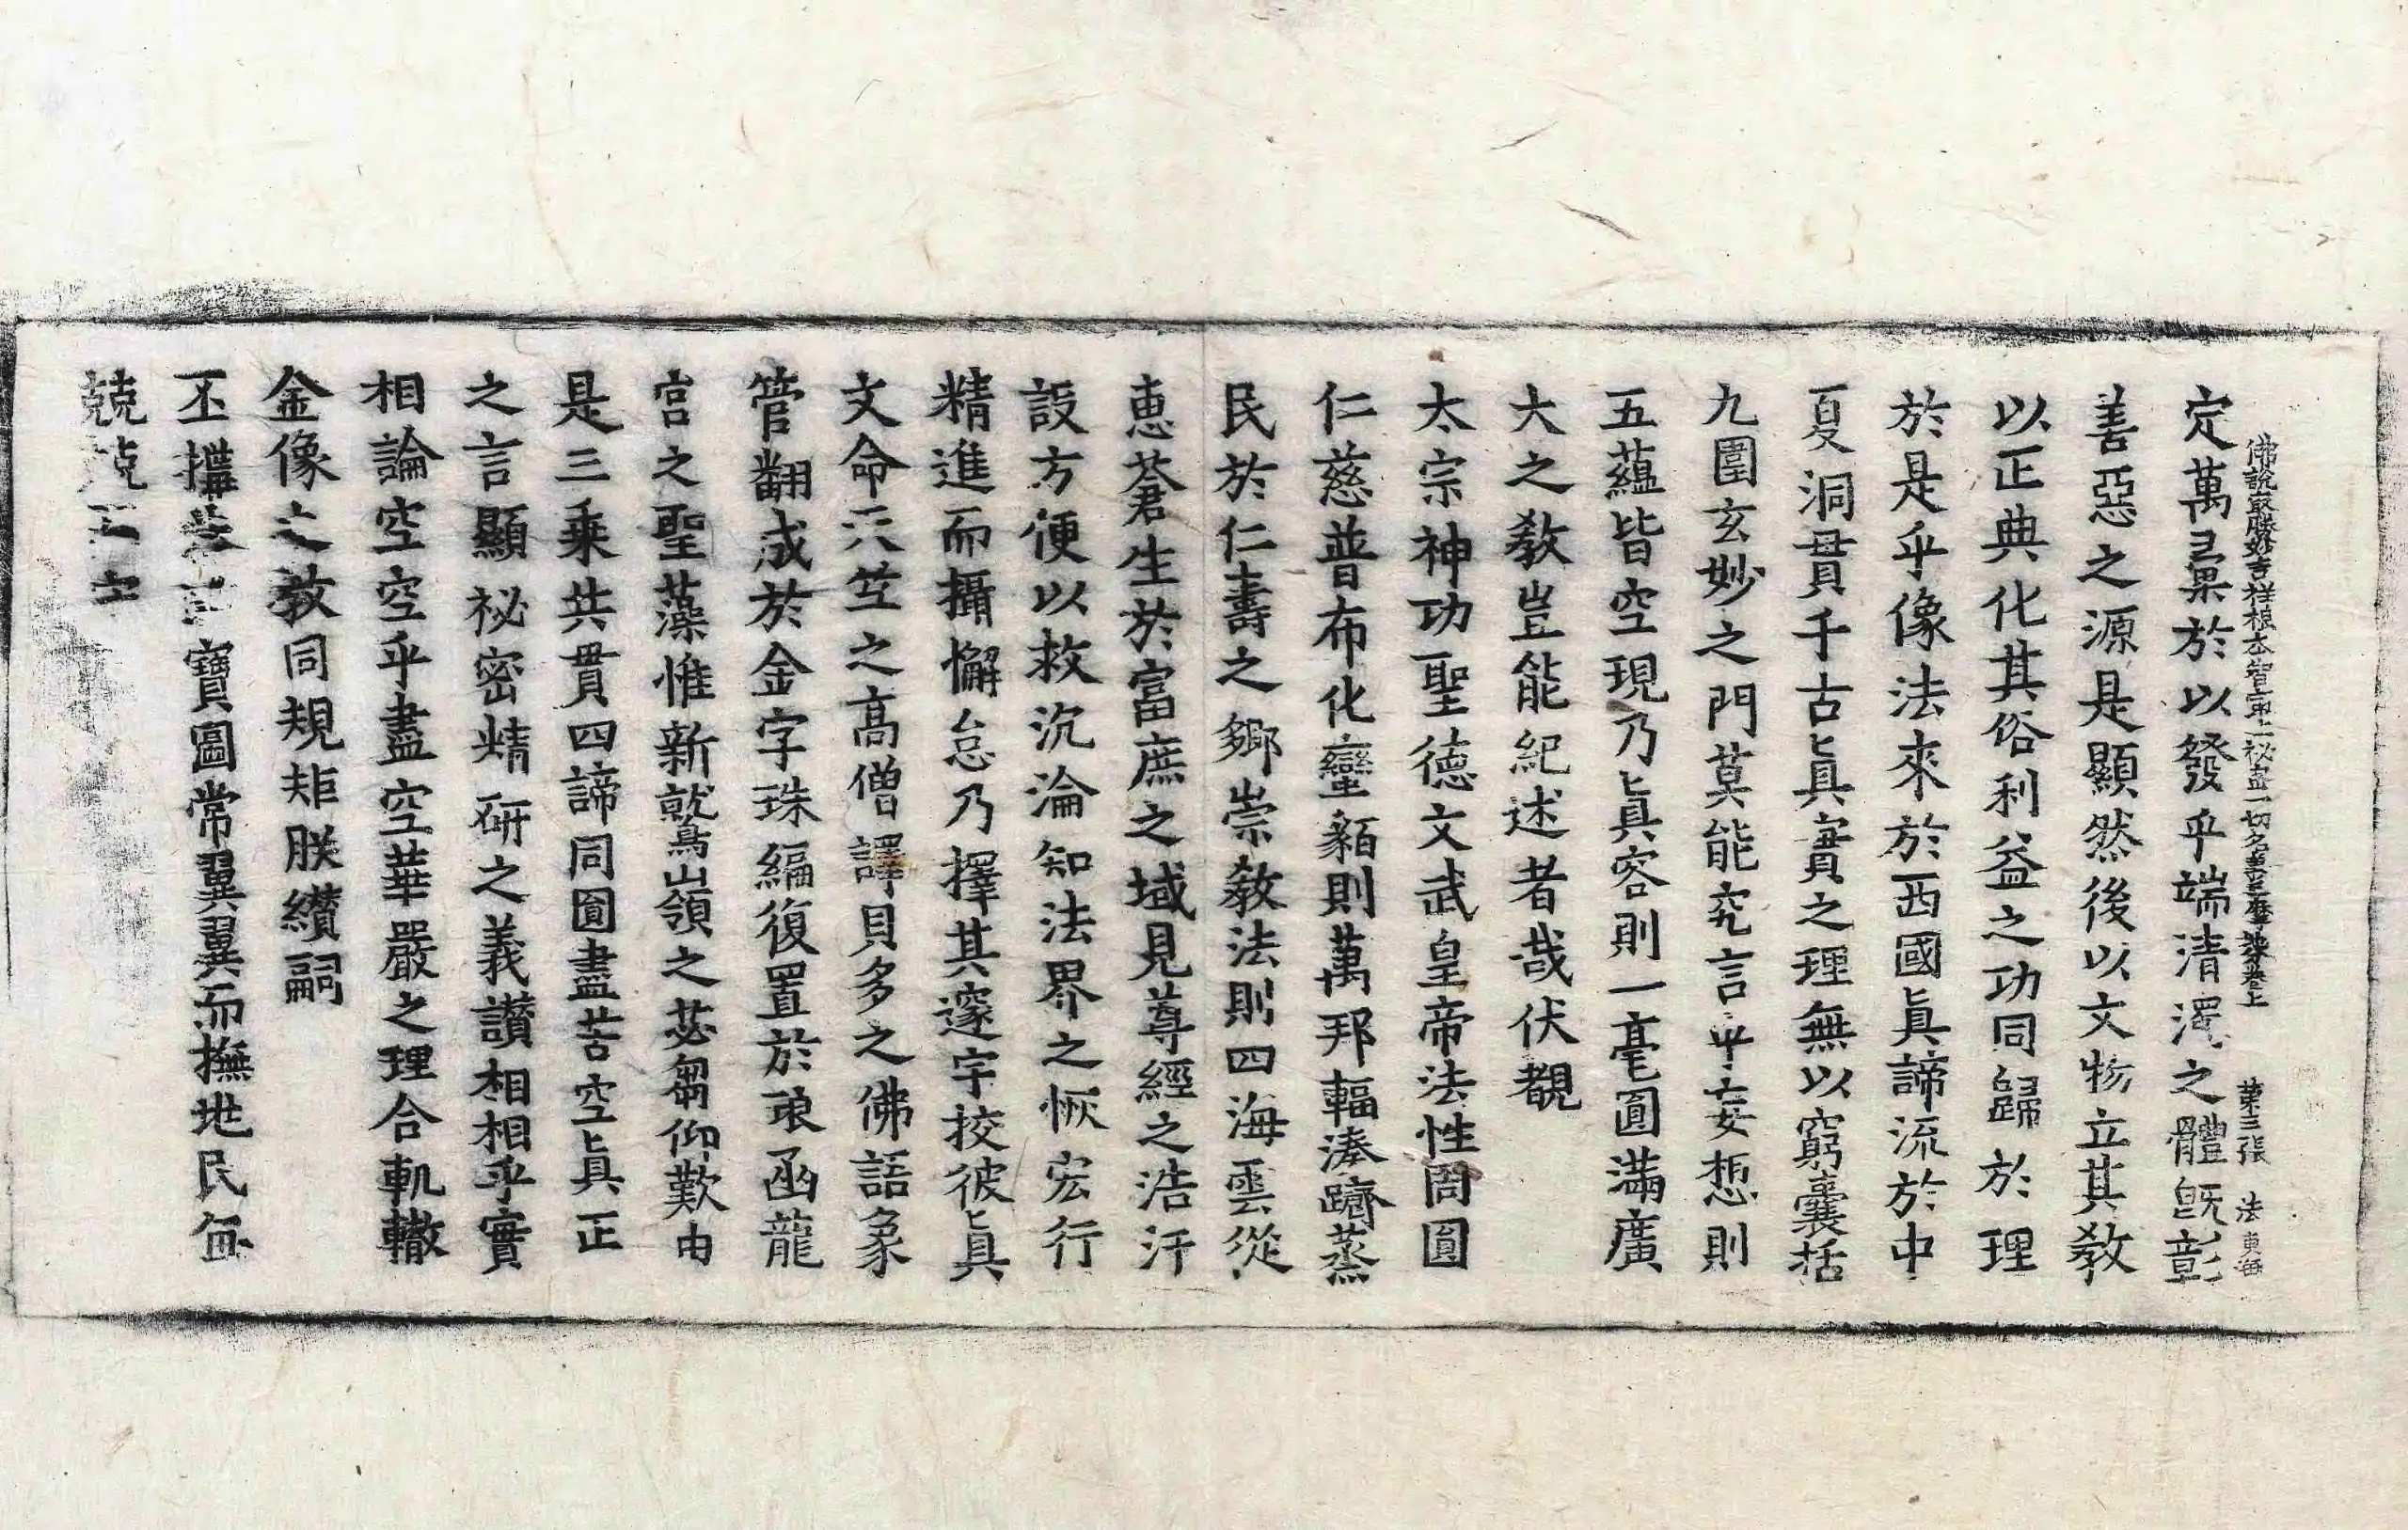 佛說最勝妙吉祥根本智最上祕密一切名義三摩地分卷上 第三張 法 東海
定萬彙於以發乎端清濁之體旣彰
善惡之源是顯然後以文物立其敎
以正典化其俗利益之功同歸於理
於是乎像法來於西國眞諦流於中
夏洞貫千古眞實之理無以窮囊括
九圍玄妙之門莫能究言乎妄想則
五蘊皆空現乃眞容則一毫圓滿廣
大之敎豈能紀述者哉伏覩
太宗神功聖德文武皇帝法性周圓
仁慈普布化蠻貊則萬邦輻湊躋蒸
民於仁壽之鄉崇敎法則四海雲從
恵蒼生於富庶之域見尊經之浩汗
設方便以救沉淪知法界之恢宏行
精進而攝懈怠乃擇其邃宇挍彼眞
文命天竺之高僧譯貝多之佛語象
管翻成於金字珠編復置於琅函龍
宮之聖藻惟新鷲嶺之苾芻仰歎由
是三乘共貫四諦同圓盡苦空眞正
之言顯祕密精硏之義讃相相乎實
相論空空乎盡空華嚴之理合軌轍
金像之敎同規矩朕纘嗣
丕搆 寶圖常翼翼而撫地民每
兢兢